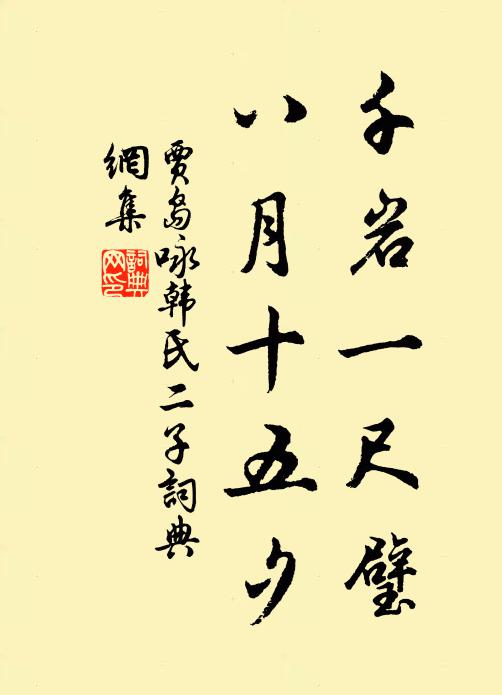 千岩一尺璧
八月十五夕
贾岛咏韩氏二子詞典
網集
詞典
网印